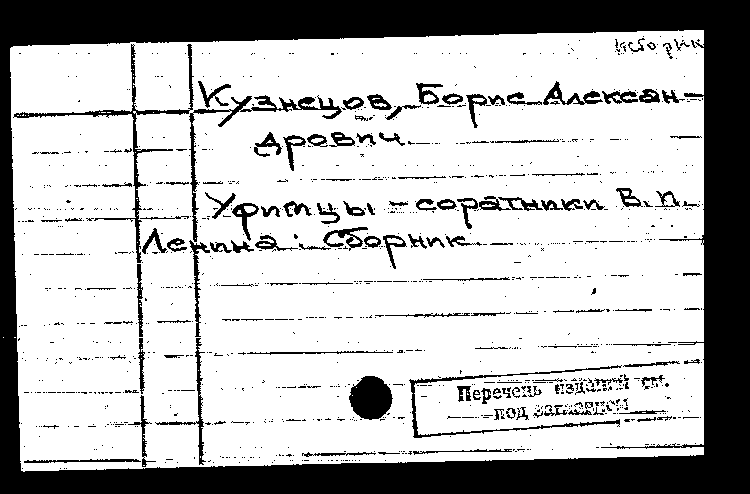 историк
Кузнецов, Борис Алексан-
дрович.
Уфимцы - соратники В. И.
Ленина : Сборник.
Перечень изданий см.
под заглавием